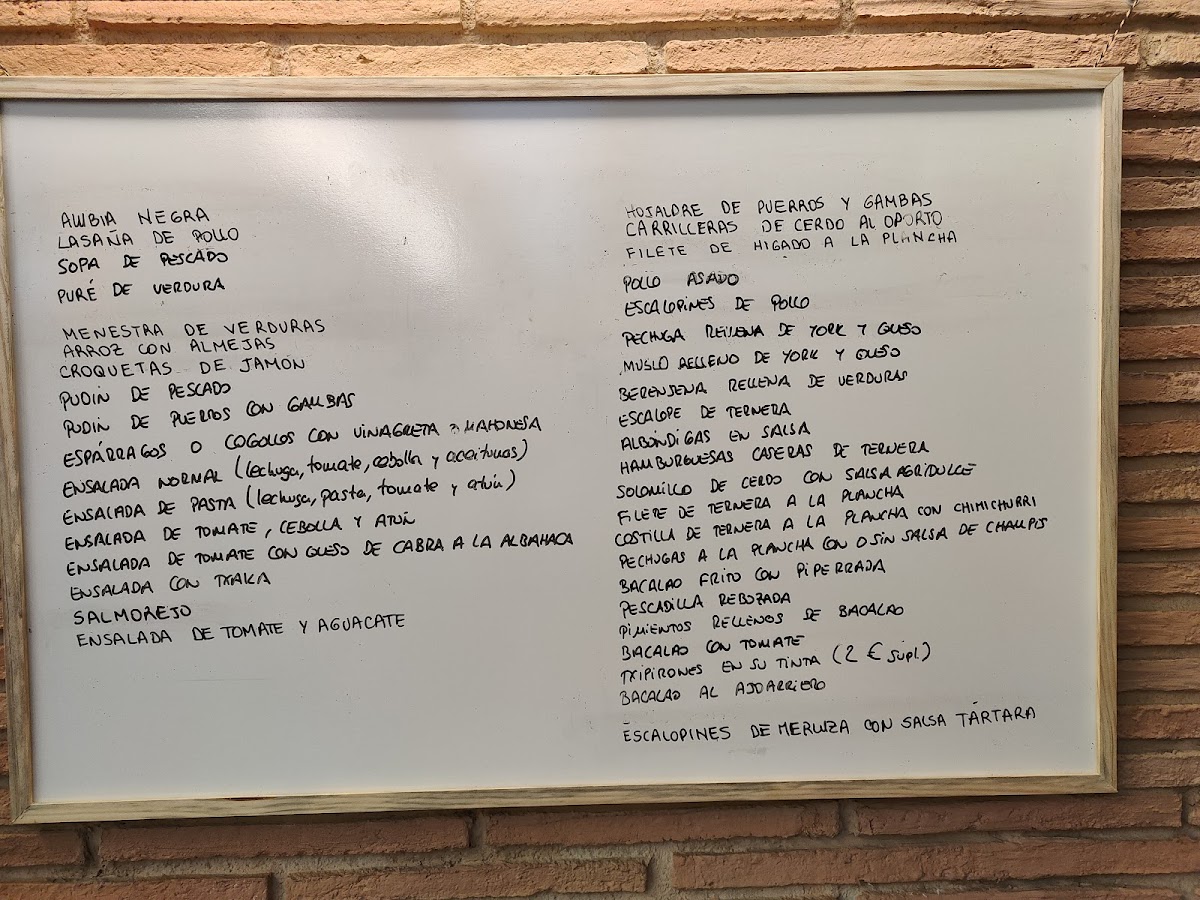 ALUBIA NEGRA
LASAÑA DE POLLO
SOPA DE PESCADO
PURÉ DE VERDURA
MENESTRA DE VERDURAS
ARROZ CON ALMEJAS
CROQUETAS DE JAMÓN
PUDIN DE PESCADO
PUDIN DE PUERROS CON GAMBAS
ESPÁRRAGOS O COGOLLOS CON VINAGRETA O MAHONESA
ENSALADA NORMAL (lechuga, tomate, cebolla y aceitunas)
ENSALADA DE PASTA (lechuga, pasta, tomate y atún)
ENSALADA DE TOMATE, CEBOLLA Y ATÚN
ENSALADA DE TOMATE CON QUESO DE CABRA A LA ALBAHACA
ENSALADA CON TXAKA
SALMOREJO
ENSALADA DE TOMATE Y AGUACATE
HOJALDRE DE PUERROS Y GAMBAS
CARRILLERAS DE CERDO AL OPORTO
FILETE DE HIGADO A LA PLANCHA
POLLO ASADO
ESCALOPINES DE POLLO
PECHUGA RELLENA DE YORK Y QUESO
MUSLO RELLENO DE YORK Y QUESO
BERENJENA RELLENA DE VERDURAS
ESCALOPE DE TERNERA
ALBÓNDIGAS EN SALSA
HAMBURGUESAS CASERAS DE TERNERA
SOLOMILLO DE CERDO CON SALSA AGRIDULCE
FILETE DE TERNERA A LA PLANCHA
COSTILLA DE TERNERA A LA PLANCHA CON CHIMICHURRI
PECHUGAS A LA PLANCHA CON O SIN SALSA DE CHAMPIS
BACALAO FRITO CON PIPERRADA
PESCADILLA REBOZADA
PIMIENTOS RELLENOS DE BACALAO
BACALAO CON TOMATE
TXIPIRONES EN SU TINTA (2 € supl.)
BACALAO AL AJOARRIERO
ESCALOPINES DE MERLUZA CON SALSA TÁRTARA